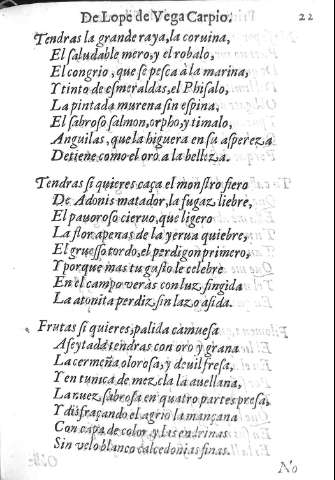 De Lope de Vega Carpio. 22
Tendras la grande raya, la coruina,
El saludable mero, y el robalo,
El congrio, que se pesca à la marina,
Y tinto de esmeraldas, el Phisalo,
La pintada murena sin espina,
El sabroso salmon, orpho, y timalo,
Anguilas, que la higuera en su aspereza
Detiene como el oro a la belleza.
Tendras si quieres caça el monstro fiero
De Adonis matador, la fugaz liebre,
El pauoroso cieruo, que ligero
La flor apenas de la yerua quiebre,
El gruesso tordo, el perdigon primero,
Y porque mas tu gusto le celebre
En el campo veràs con luz fingida
La atonita perdiz sin lazo asida.
Frutas si quieres, palida camuesa
Afeytada tendras con oro y grana
La cermeña olorosa, y débil fresa,
Y en tunica de mezcla la auellana,
La nuez sabrosa en quatro partes presa,
Y disfraçando el agrio la mançana
Con capa de color, y las endrinas
Sin velo blanco calcedonias finas.
No